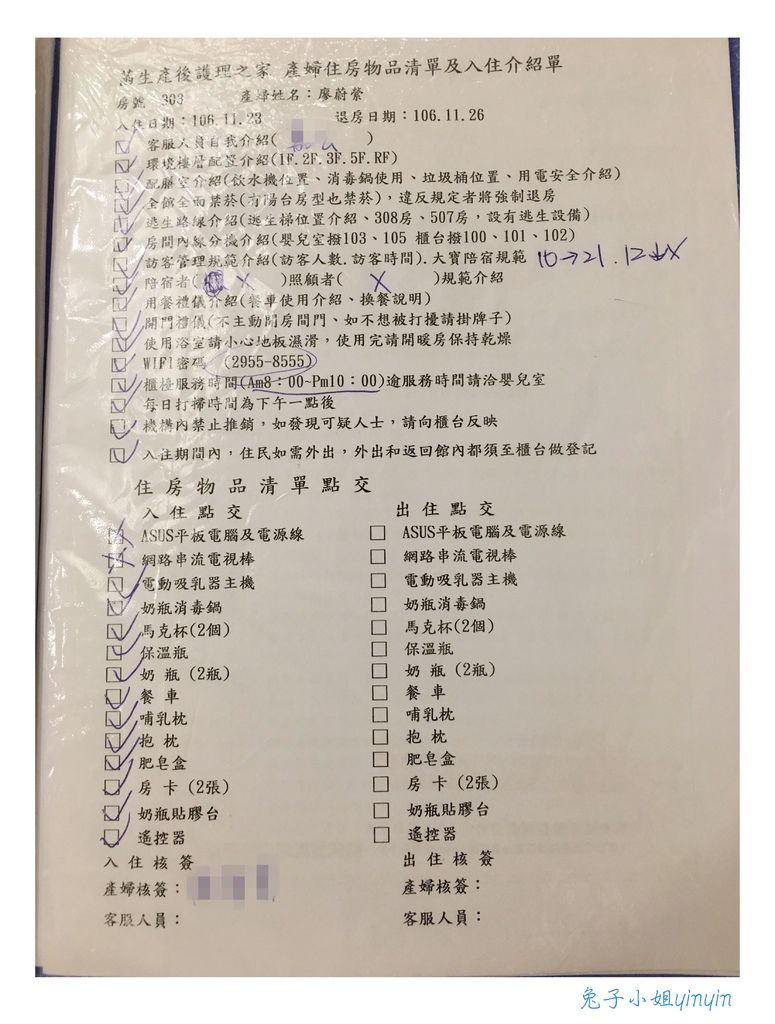 滿生產後護理之家 產婦住房物品清單及入住介紹單
房號 303 產婦姓名：廖蔚縈
入住日期：106.11.23 退房日期：106.11.26
客服人員自我介紹( )
環境樓層配置介紹(1F.2F.3F.5F.RF)
配膳室介紹(飲水機位置、消毒鍋使用、垃圾桶位置、用電安全介紹)
全館全面禁菸(有陽台房型也禁菸)，違反規定者將強制退房
逃生路線介紹(逃生梯位置介紹、308房、507房，設有逃生設備)
房間內線分機介紹(嬰兒室撥103、105 櫃台撥100、101、102)
訪客管理規範介紹(訪客人數.訪客時間).大寶陪宿規範 10→21 . 12↓X
陪宿者( X )照顧者( X )規範介紹
用餐禮儀介紹(餐車使用介紹、換餐說明)
開門禮儀(不主動開房間門、如不想被打擾請掛牌子)
使用浴室請小心地板濕滑，使用完請開暖房保持乾燥
WIFI密碼 (2955-8555)
櫃檯服務時間(Am8：00~Pm10：00)逾服務時間請洽嬰兒室
每日打掃時間為下午一點後
機構內禁止推銷，如發現可疑人士，請向櫃台反映
入住期間內，住民如需外出，外出和返回館內都須至櫃台做登記
住房物品清單點交
入住點交 出住點交
ASUS平板電腦及電源線 ASUS平板電腦及電源線
網路串流電視棒 網路串流電視棒
電動吸乳器主機 電動吸乳器主機
奶瓶消毒鍋 奶瓶消毒鍋
馬克杯(2個) 馬克杯(2個)
保溫瓶 保溫瓶
奶 瓶 (2瓶) 奶 瓶 (2瓶)
餐 車 餐 車
哺乳枕 哺乳枕
抱 枕 抱 枕
肥皂盒 肥皂盒
房 卡 (2張) 房 卡 (2張)
奶瓶貼膠台 奶瓶貼膠台
遙控器 遙控器
入住核簽 出住核簽
產婦核簽： 產婦核簽：
客服人員： 客服人員：
兔子小姐yinyin